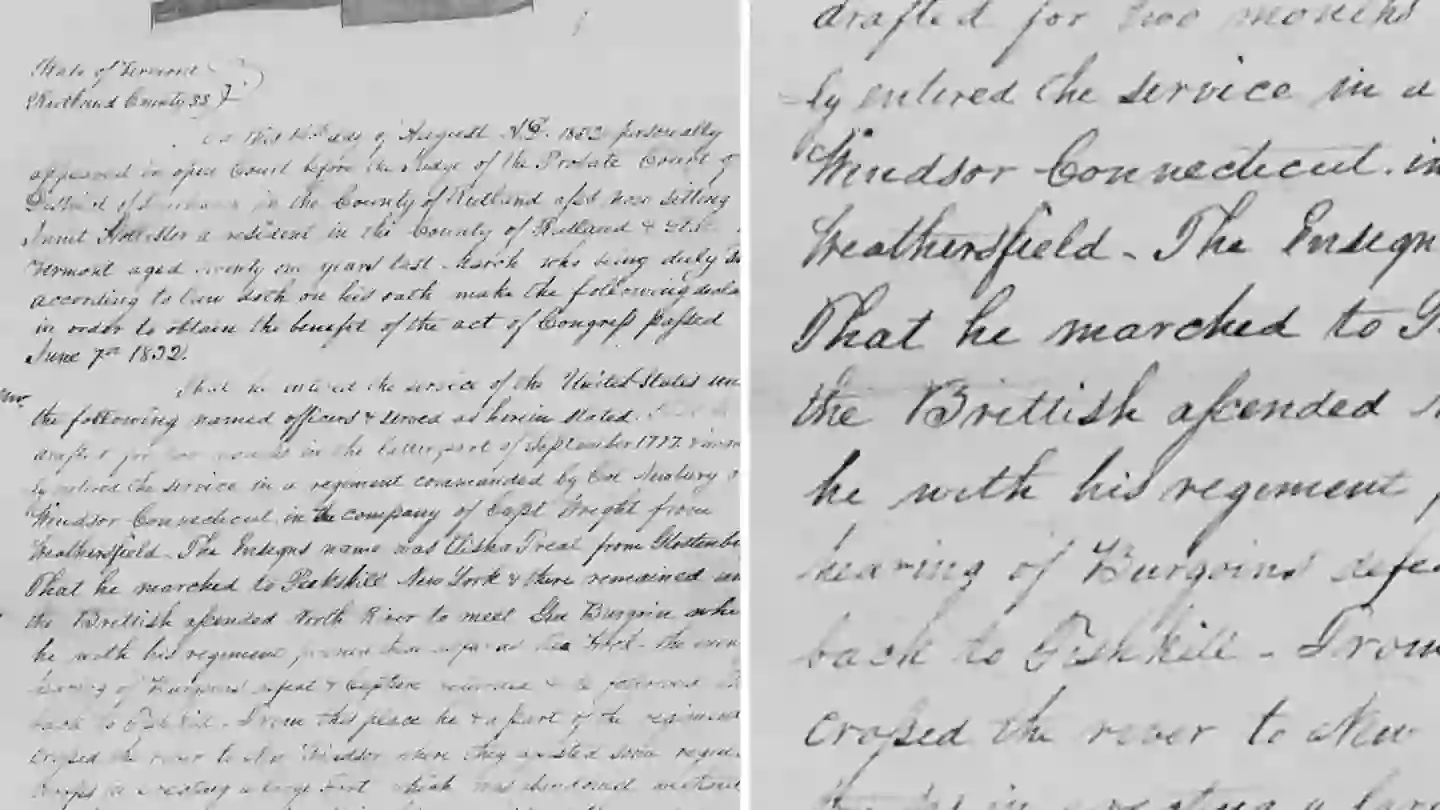 State of Vermont
Rutland County SS
day of August A.D. 1832 personally
appeared in open Court before the Judge of the Probate Court of
District of in the County of Rutland afsd now sitting
Hollister a resident in the County of Rutland &
Vermont aged seventy one years last March who being duly
according to law doth on his oath make the following
in order to obtain the benefit of the act of Congress passed
June 7th 1832.
That he entered the service of the United States
the following named officers & served as herein stated.
drafted for two months in the latter part of September 1777 &
ly entered the service in a regiment commanded by Col Newbury
Windsor Connecticut in the company of Capt Wright from
Weathersfield - The Ensigns name was Elisha Treat from
That he marched to Peekskill New York & there remained
the Brittish ascended North River to meet Gen Burgoin
he with his regiment
hearing of Burgoins defeat & Capture returned &
back to Fishkill - From this place he & a part of the regiment
crossed the river to New Windsor where they assisted some
troops in erecting a large Fort which was abandoned
drafted for two months
ly entered the service in a
Windsor Connecticut. in
Weathersfield - The Ensign
That he marched to
the Brittish ascended
he with his regiment
hearing of Burgoins
back to Fishkill - From
crossed the river to New
in erecting a